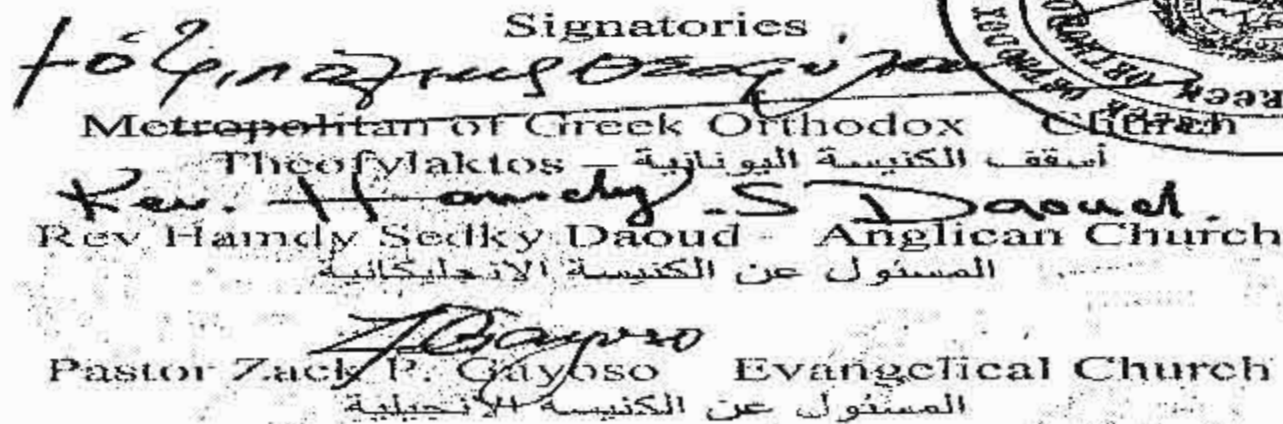 Signatories
Metropolitan of Greek Orthodox Church
Theofylaktos – أسقف الكنيسة اليونانية
Rev. Hamdy .S Daoud.
Rev Hamdy Sedky Daoud - Anglican Church
المسئول عن الكنيسة الانجليكانية
Pastor Zack P. Gayoso Evangelical Church
المسئول عن الكنيسة الانجيلية